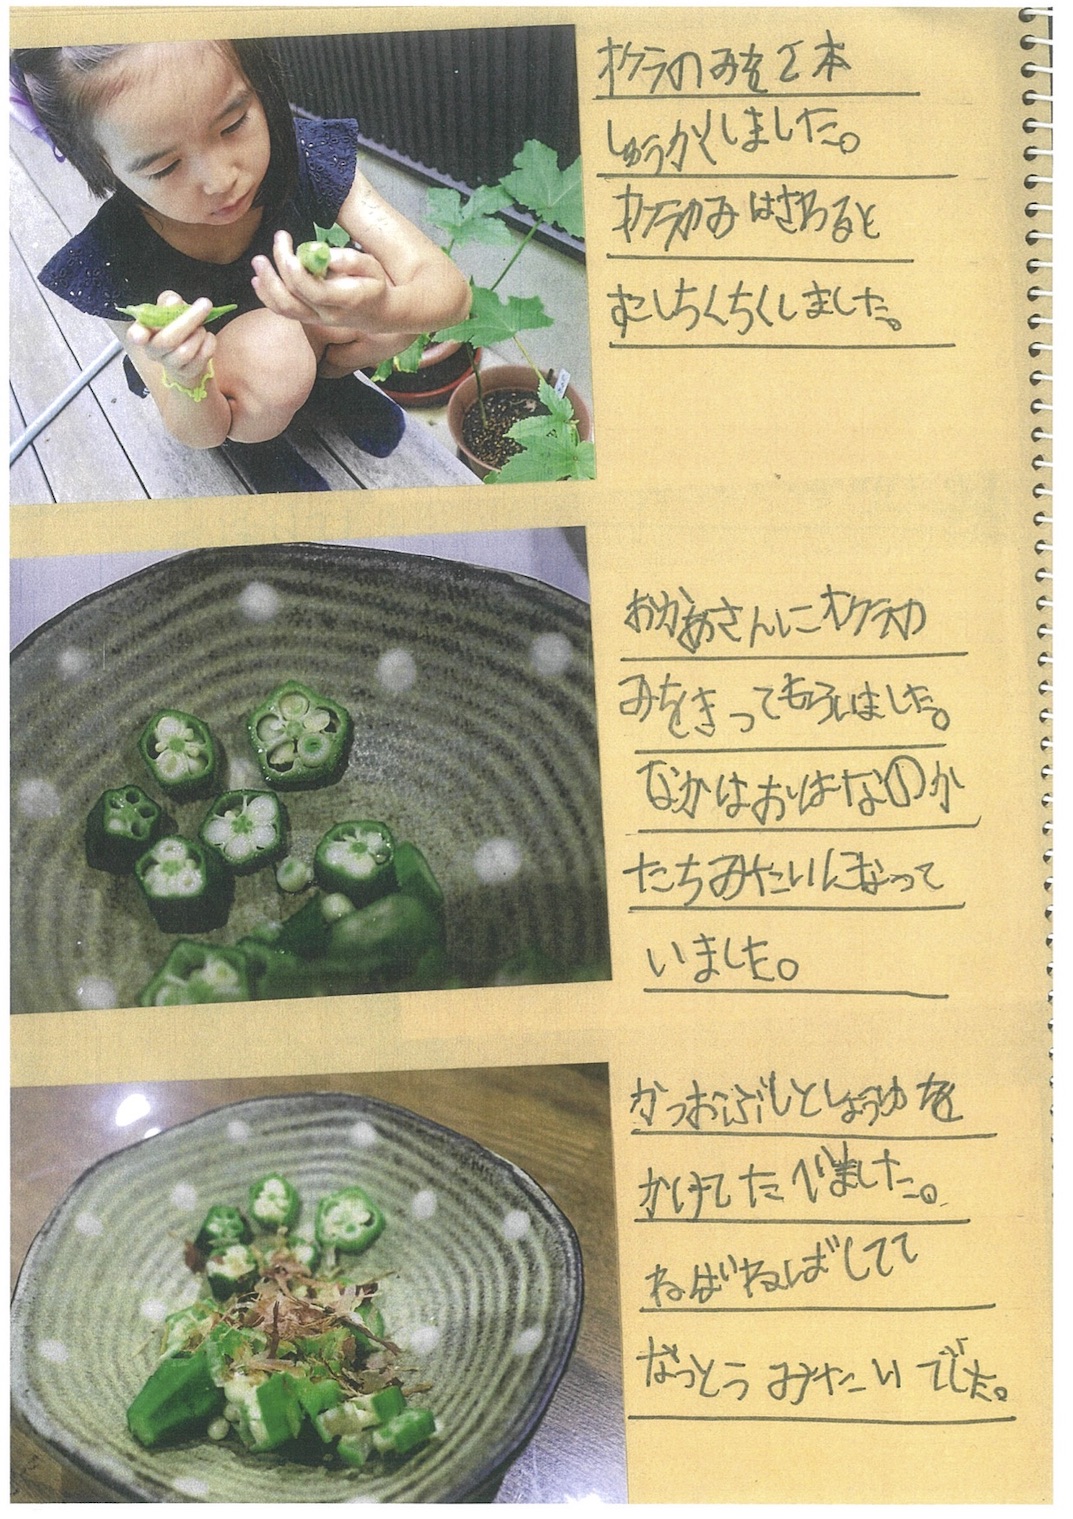 オクラのみを2本
しゅうかくしました。
オクラのみはさわると
すこしちくちくしました。
おかあさんにオクラの
みをきってもらいました。
なかはおはなのか
たちみたいになって
いました。
かつおぶしとしょうゆを
かけてたべました。
ねばねばしてて
なっとうみたいでした。